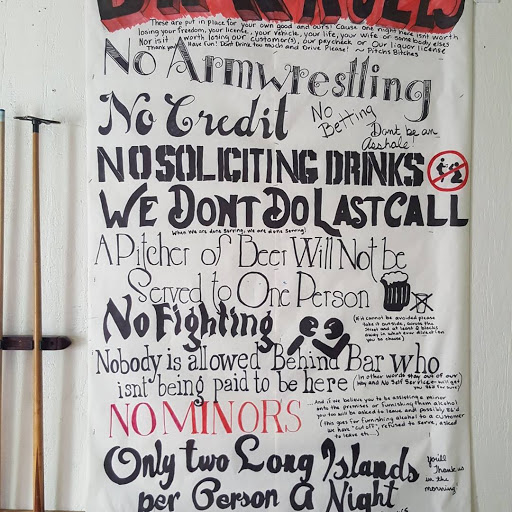 BAR RULES
These are put in place for your own good and ours! Cause one night here isnt worth
losing your freedom, your license, your vehicle, your life, your wife or somebody elses
Nor is it worth losing our customer(s), our paycheck or Our liquor license
Thank you! Have fun! Dont Drink too much and Drive Please! ~ Pitchs Bitches
No Armwrestling
No Credit
No Betting
Dont be an Asshole!
NO SOLICITING DRINKS
WE DONT DO LAST CALL
(When We are done Serving, We are done Serving)
A Pitcher of Beer Will Not be
Served to One Person
No Fighting
(If it cannot be avoided please
take it outside, across the
Street and at least 2 blocks
away in what ever direction
you so choose)
Nobody is allowed Behind Bar who
isnt being paid to be here
(In other words stay out of our
way and No Self Service will get
you 86d for sure)
NO MINORS
...And if we believe you to be assisting a minor
onto the premises or furnishing them alcohol
you too will be asked to leave and possibly 86d
(this goes for furnishing alcohol to a customer
we have "cut off", refused to serve, asked
to leave etc...)
Only two Long Islands
per Person A Night
you'll
Thank us
in the
morning